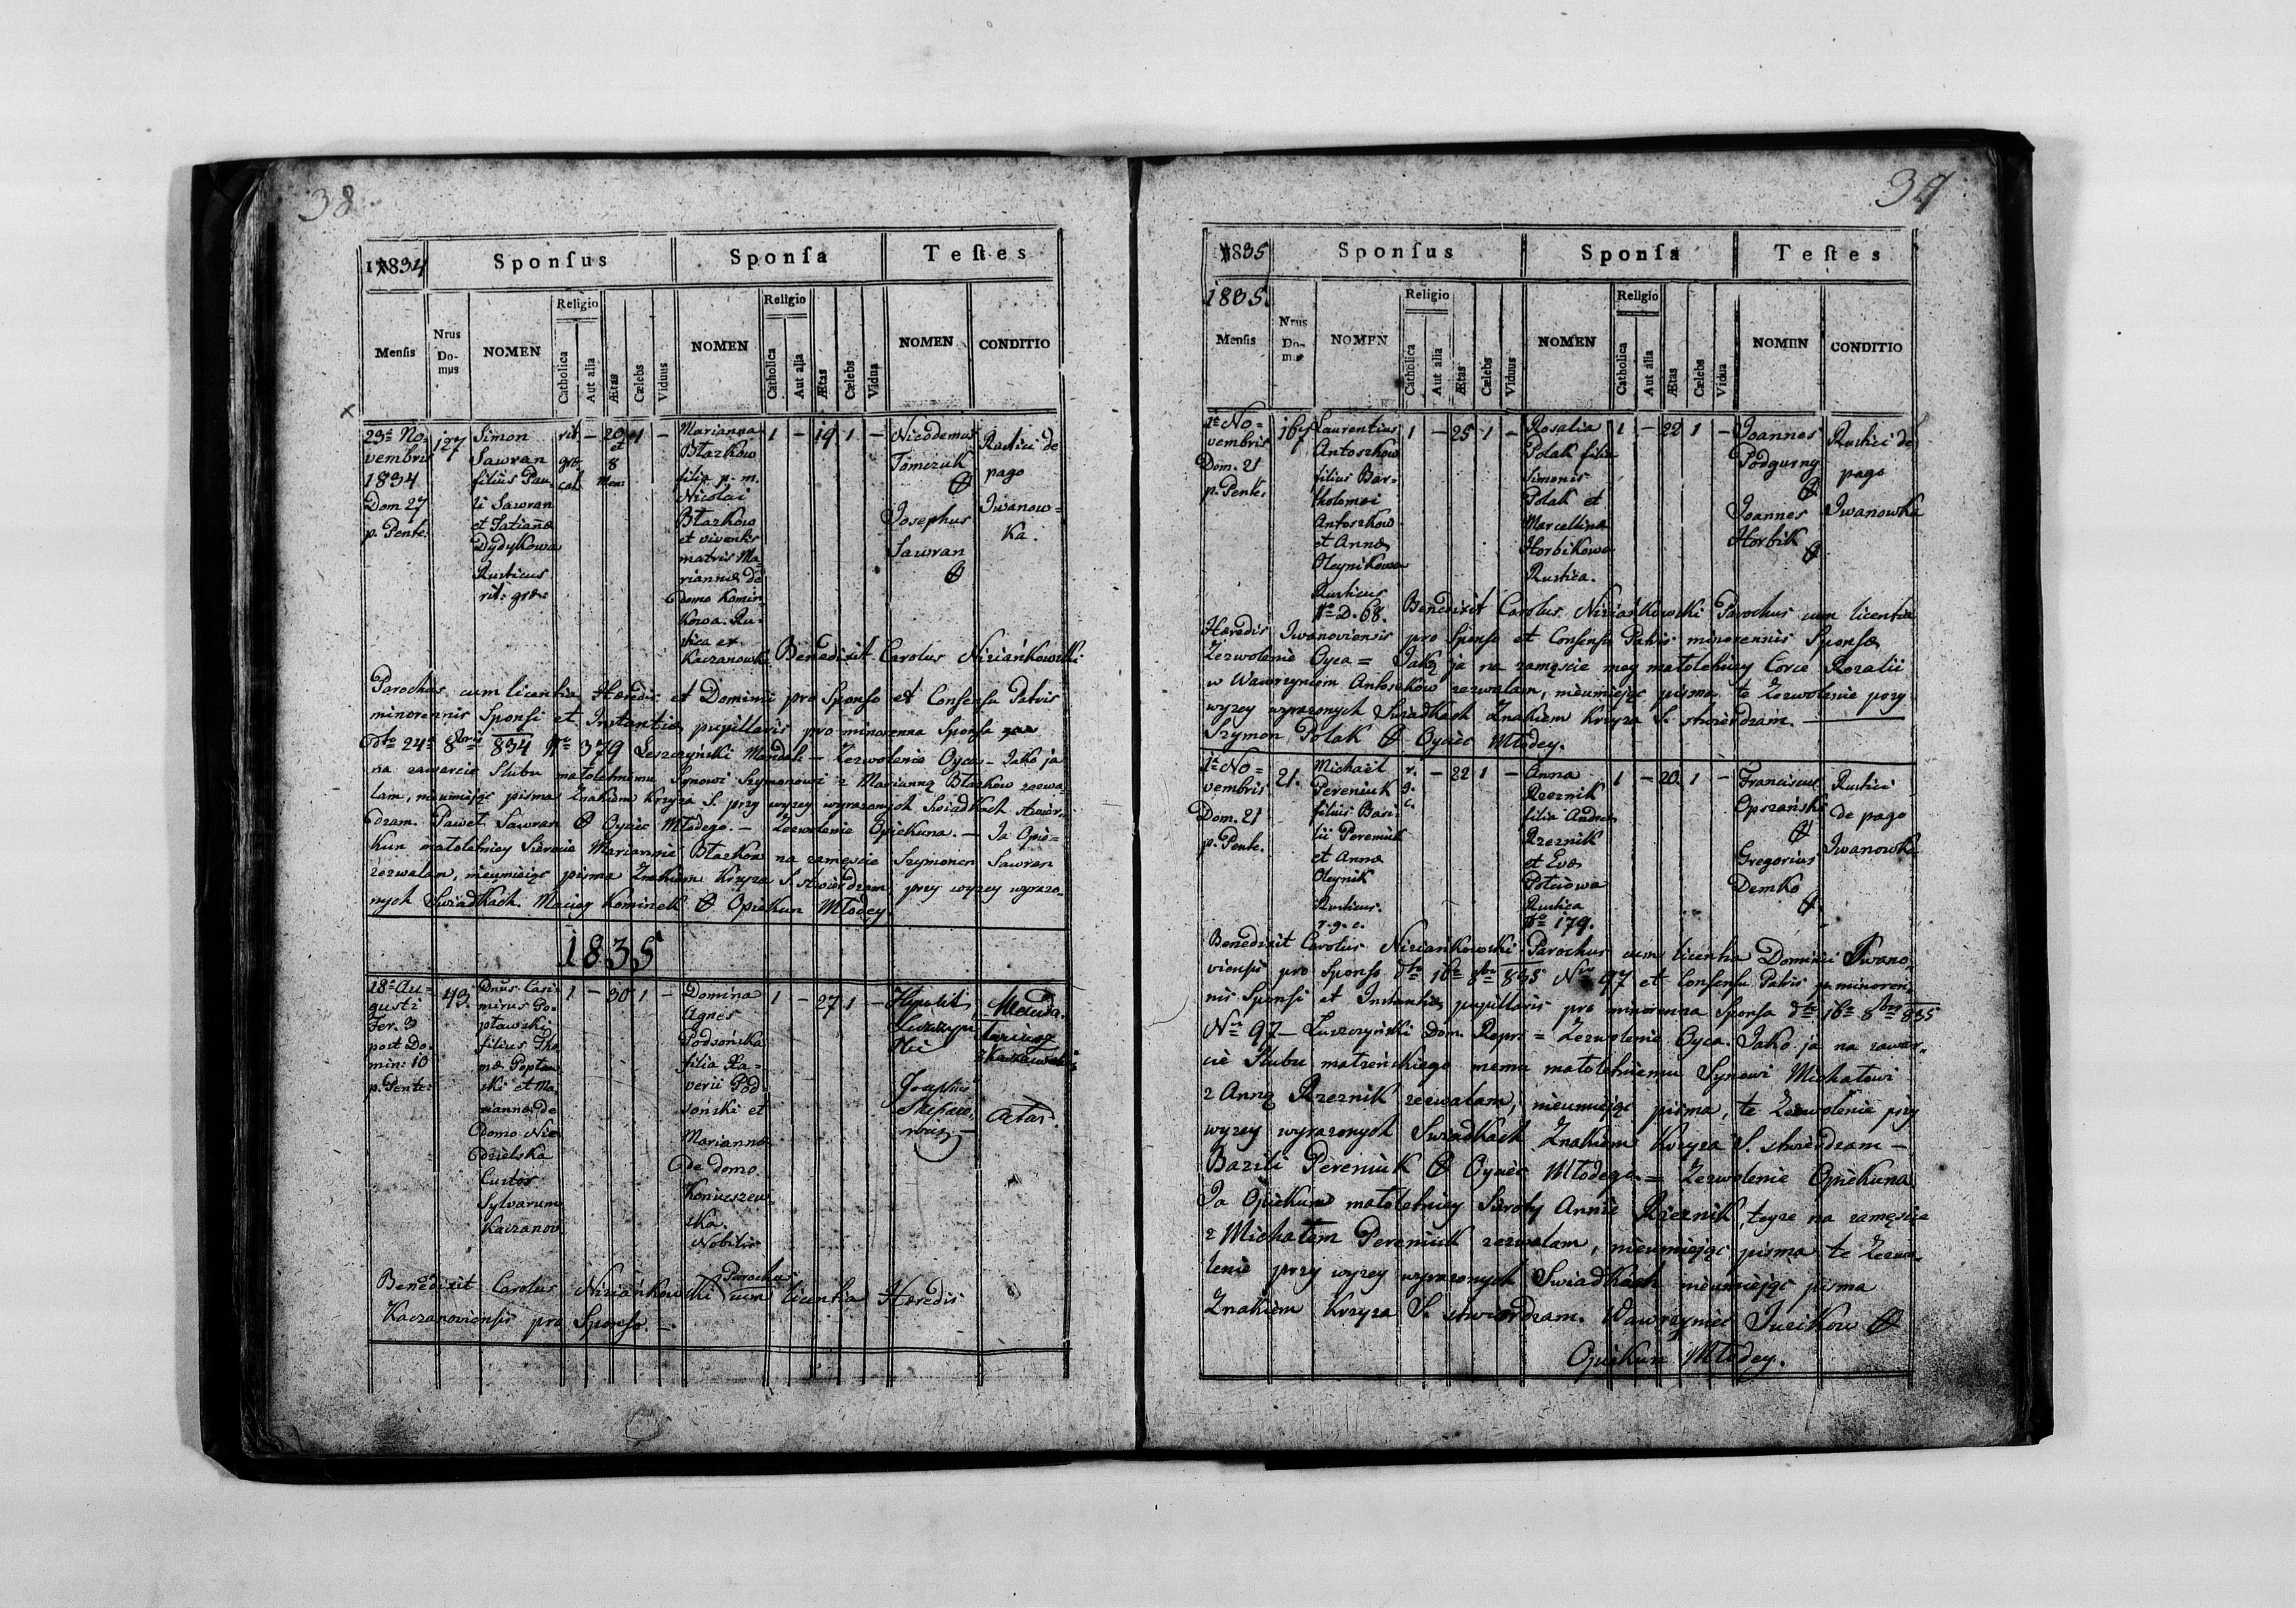 38
1834
Sponſus
Sponſa
Teſtes
Menſis
Nrus Do- mus
NOMEN
Religio
Catholica
Aut alia
Ætas
Cælebs
Viduus
NOMEN
Religio
Catholica
Aut alia
Ætas
Cælebs
Vidua
NOMEN
CONDITIO
23a No=
vembris
1834
Dom 27
p. Pente.
127
Simon
Sawran
filius Pau
li Sawran
et Tatianæ
Dydykowa
Rusticus
rit: græ:
rit.
græ
cat.
-
20
et
8
Men:
1
-
Marianna
Błazkow
filia p. m.
Nicolai
Błazkow
et viventis
matris Ma-
riannæ de
domo Komin
kowa. Ru-
stica ex
Kaczanowka
1
-
19
1
-
Nicodemus
Tomczuk
Josephus
Sawran
Rustici de
pago
Iwanow=
ka.
Benedixit Carolus Niziańkowski
Parochus cum licentia Hæredis et Dominii pro Sponso et Consensu Patris
minorennis Sponsi et Instantiæ pupillaris pro minorenna Sponsa
dto 24a 8bris 834 No 379 Leszczyński Mandat: - Zezwolenie Oyca - Jako ja
na zawarcie Slubu małoletniemu Synowi Szymonowi z Marianną Błazkow zezwa-
lam, nieumiejąc pisma Znakiem Krzyza S. przy wyzey wyrazonych Swiadkach stwier-
dzam. Paweł Sawran Oyciec Młodego. - Zezwolenie Opiekuna. - Ja Opie=
kun małoletniey Sierocie Mariannie Błazkow na zamęscie Szymonem Sawran
zezwalam, nieumiejąc pisma Znakiem Krzyza S. stwierdzam przy wyzey wyrazo-
nych Swiadkach. Maciey Kominek Opiekun Młodey
1835
18a Au=
gusti
Fer. 3
post Do-
min: 10
p. Pente:
43.
Dnus Casi-
mirus Po-
pławski
filius Tho
mæ Popław
ski et Ma-
riannæ de
domo Nie
dzielska
Custos
Sylvarum
Kaczanov
1
-
30
1
-
Domina
Agnes
Podsońska
filia Xa-
verii Pod-
soński et
Mariannæ
de domo
Koniuszew
ska.
Nobilis
1
-
27
1
-
Hypolit
Josephus
Manda-
tariusz
Actar.
Benedixit Carolus Niziańkowski Parochus cum licentia Hæredis
Kaczanoviensis pro Sponso. -
39
1835
Sponſus
Sponſa
Teſtes
1835.
Menſis
Nrus Do- mus
NOMEN
Religio
Catholica
Aut alia
Ætas
Cælebs
Viduus
NOMEN
Religio
Catholica
Aut alia
Ætas
Cælebs
Vidua
NOMEN
CONDITIO
1a No=
vembris
Dom. 21
p. Pente.
167
Laurentius
Antoszkow
filius Bar-
tholomæi
Antoszkow
et Annæ
Oleynikowa
Rusticus
No D. 68.
1
-
25
1
-
Rosalia
Polak filia
Simonis
Polak et
Marcellinæ
Horbikowa
Rustica.
1
-
22
1
-
Joannes
Podgurny
Joannes
Horbik
Rustici de
pago
Iwanowka
Benedixit Carolus Niziańkowski Parochus cum licentia
Hæredis Iwanoviensis pro Sponso et Consensu Patris minorennis Sponsæ
Zezwolenie Oyca = Jako ja na zamęscie mey małoletniey Corce Rozalii
w Wawrzyncem Antoszkow zezwalam, nieumiejąc pisma te Zezwolenie przy
wyzey wyrazonych Swiadkach Znakiem Krzyza S. stwierdzam.
Szymon Polak Oyciec Młodey.
1a No=
vembris
Dom. 21
p. Pente.
21.
Michael
Pereniuk
filius Basi-
lii Pereniuk
et Annæ
Oleynik
Rusticus.
r. g. c.
r.
g.
c.
-
22
1
-
Anna
Rzeznik
filia Andreæ
Rzeznik
et Evæ
Potciowa
Rustica
No 179.
1
-
20
1
-
Franciscus
Opszański
Gregorius
Demko
Rustici
de pago
Iwanowka
Benedixit Carolus Niziańkowski Parochus cum licentia Dominii Iwano-
viensis pro Sponso dto 16a 8br 835 Nro 97 et Consensu Patris minoren-
nis Sponsi et Instantiæ pupillaris pro minorenna Sponsa dto 16a 8bris 835
Nro 97 - Leszczyński Dom. Repr: = Zezwolenie Oyca. Jako ja na zawar-
cie Slubu małzeńskiego memu małoletniemu Synowi Michałowi
z Anną Rzeznik zezwalam, nieumiejąc pisma, te Zezwolenie przy
wyzey wyrazonych Swiadkach Znakiem Krzyza S. stwierdzam -
Bazili Pereniuk Oyciec Młodego = Zezwolenie Opiekuna
Ja Opiekun małoletniey Siroty Annie Rzeznik, teyze na zamęscie
z Michałem Pereniuk zezwalam, nieumiejąc pisma te Zezwo-
lenie przy wyzey wyrazonych Swiadkach nieumiejąc pisma
Znakiem Krzyza S. stwierdzam. Wawrzyniec Juzikow
Opiekun Młodey.